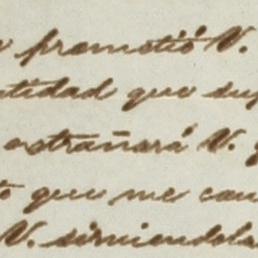 prometió V.
tidad que
estrañará V.
que me
V. sirviendola